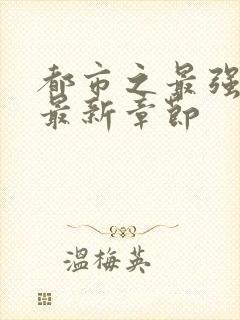 都市之最强
最新章节
温梅英